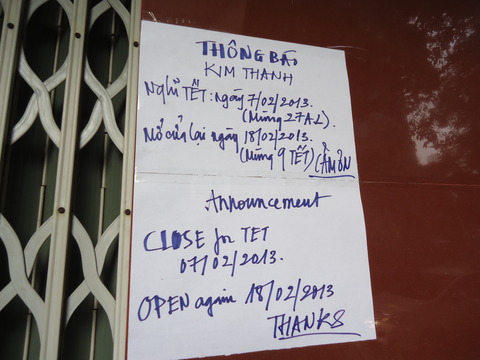 THÔNG BÁO
KIM THANH
NGHỈ TẾT: ngày 7/02/2013.
(Mùng 27 A.L).
Mở cửa lại ngày 18/02/2013.
(Mùng 9 TẾT) CẢM ƠN
Announcement
CLOSE for TET
07/02/2013.
OPEN again 18/02/2013
THANKS